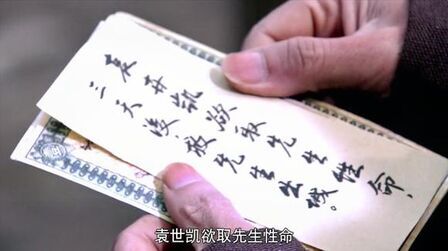 袁世凯欲取先生性命,
三天後,救先生出城。
袁世凯欲取先生性命